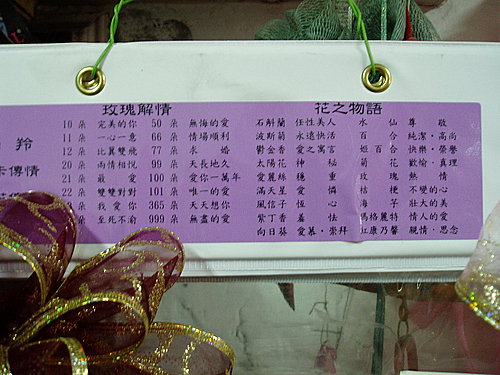 玫瑰解情 花之物語
10 朵 完美的你 50 朵 無悔的愛 石斛蘭 任性美人 水仙 尊敬
11 朵 一心一意 66 朵 情場順利 波斯菊 永遠快活 百合 純潔・高尚
12 朵 比翼雙飛 77 朵 求婚 鬱金香 愛之寓言 姬百合 快樂・榮譽
20 朵 兩情相悅 99 朵 天長地久 太陽花 神秘 菊花 歡愉・真理
21 朵 最愛 100 朵 愛你一萬年 愛麗絲 穩重 玫瑰 熱情
22 朵 雙雙對對 101 朵 唯一的愛 滿天星 愛憐 桔梗 不變的心
朵 我愛你 365 朵 天天想你 風信子 恆心 海芋 壯大的美
朵 至死不渝 999 朵 無盡的愛 紫丁香 羞怯 瑪格麗特 情人的愛
向日葵 愛慕・崇拜 康乃馨 親情・思念
羚
卡傳情